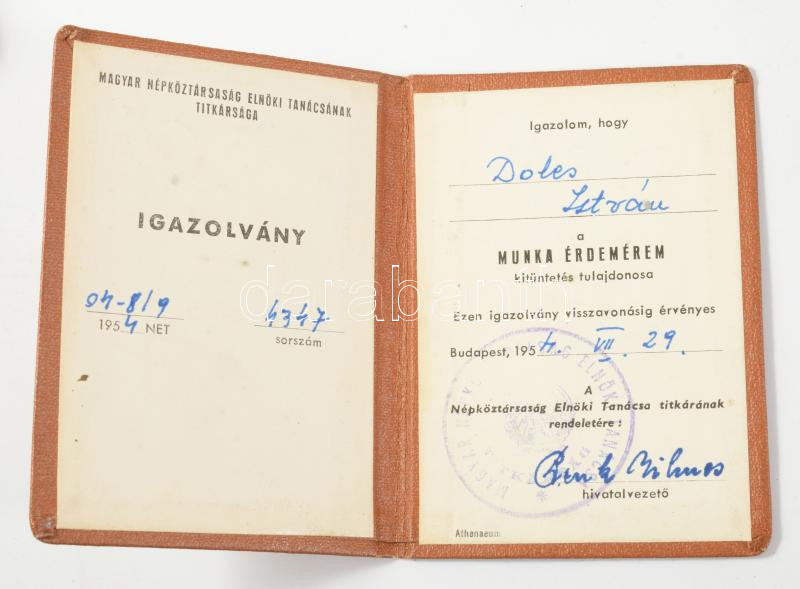 MAGYAR NÉPKÖZTÁRSASÁG ELNÖKI TANÁCSÁNAK
TITKÁRSÁGA
IGAZOLVÁNY
04-8/9
4347
1954 NET
sorszám
Igazolom, hogy
Doles
István
a
MUNKA ÉRDEMÉREM
kitüntetés tulajdonosa
Ezen igazolvány visszavonásig érvényes
Budapest, 1954. VII. 29.
A
Népköztársaság Elnöki Tanácsa titkárának
rendeletére:
Vilmos
hivatalvezető
Athenaeum
darabanth